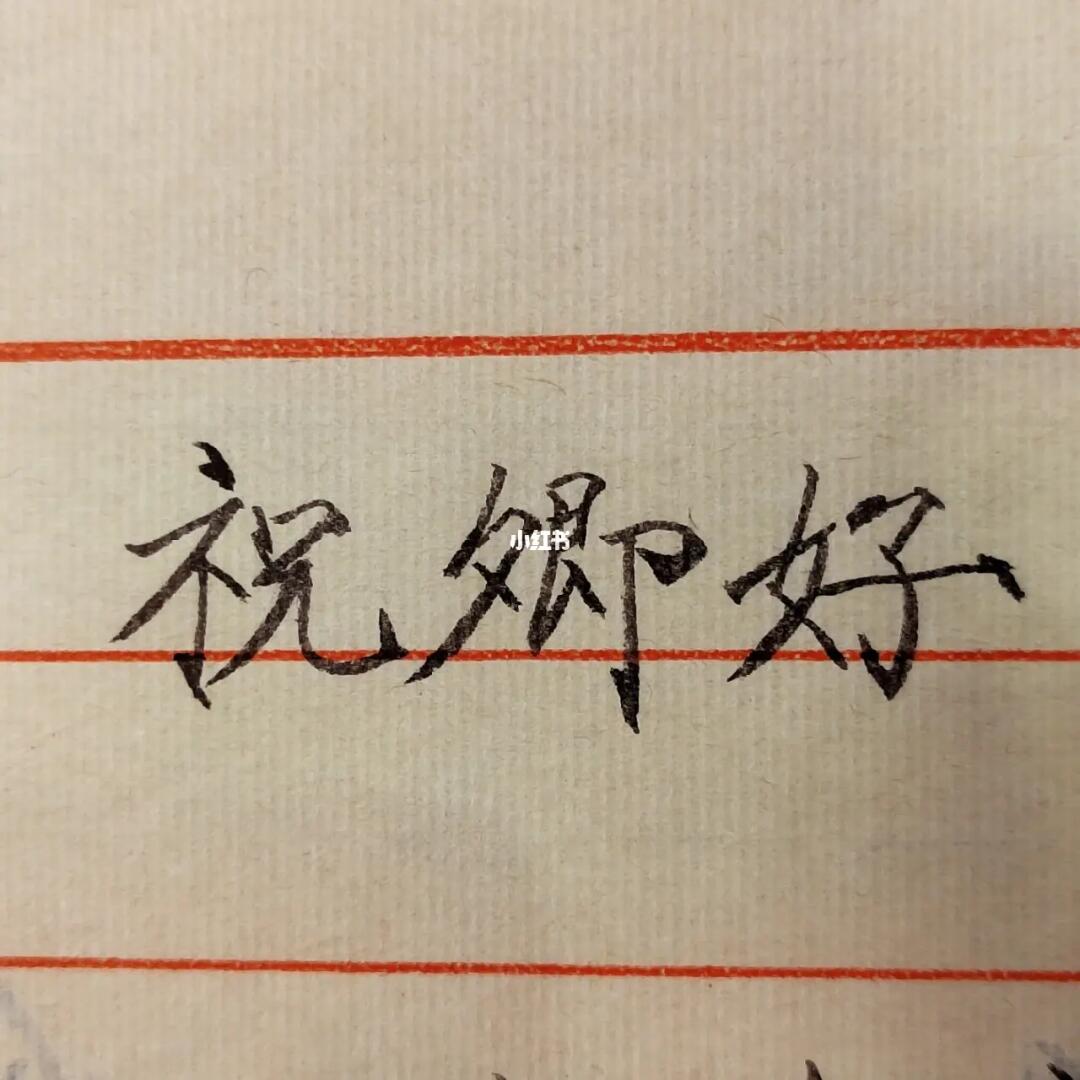 祝卿好
小红书